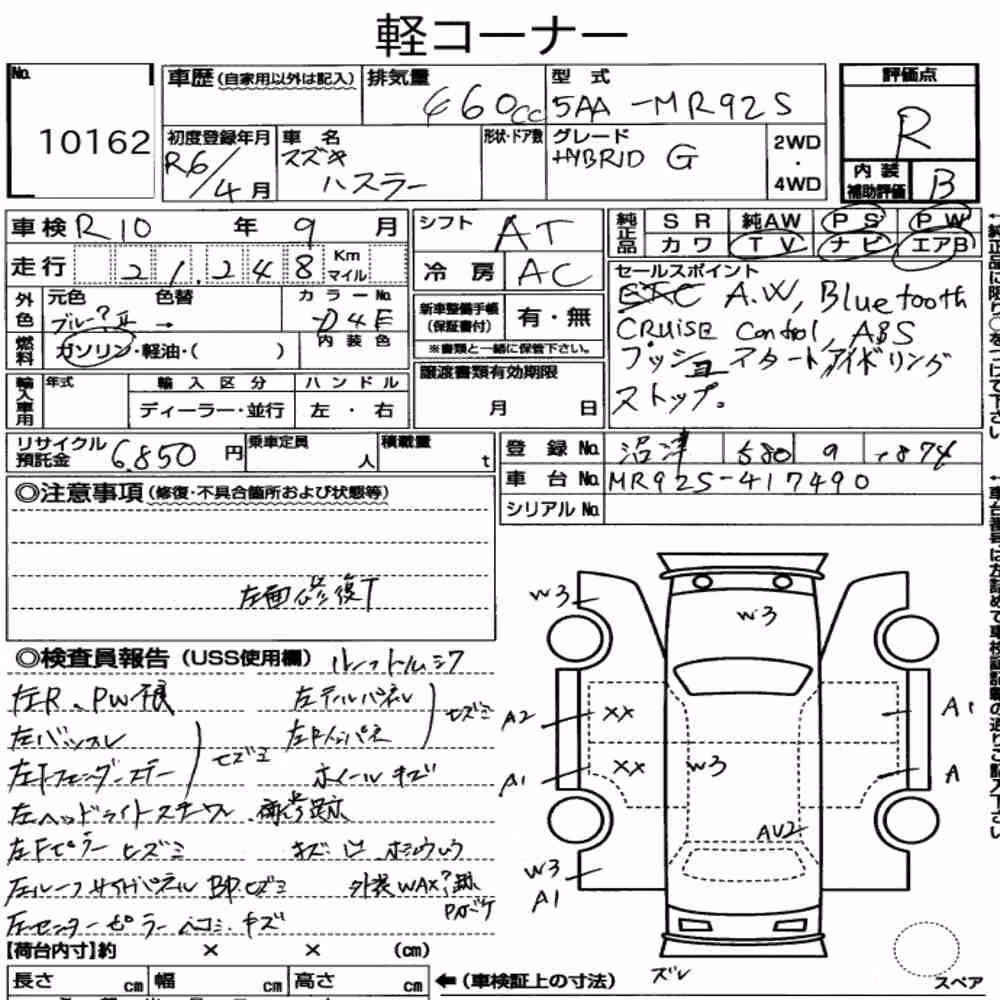 軽コーナー
No. 10162
車歴 (自家用以外は記入)
排気量 660cc
型式 5AA-MR92S
評価点 R
初度登録年月 R6/4月
車名 スズキ ハスラー
形状・ドア数
グレード HYBRID G
2WD・4WD
内装補助評価 B
車検 R10年 9月
走行 21,248 Km マイル
シフト AT
冷房 AC
純正品 SR 純AW PS PW
カワ TV ナビ エアB
外色 元色 色替 カラーNo.
ブルー → D4E
内装色
燃料 ガソリン・軽油・( )
新車整備手帳(保証書付) 有・無
※書類と一緒に保管下さい。
セールスポイント
ETC A.W, Bluetooth
CRUISE control, ABS
プッシュスタート アイドリング
ストップ。
輸入車用 年式 輸入区分 ハンドル
ディーラー・並行 左・右
譲渡書類有効期限
月 日
リサイクル預託金 6,850円
乗車定員 人
積載量 t
登録No. 沼津 580
車台No. MR92S-417490
シリアルNo.
◎注意事項 (修復・不具合箇所および状態等)
左面修復
◎検査員報告 (USS使用欄)
左R、PW不良
左テールパネル
左Fフェンダーステー
ヒズミ
ホイールキズ
左ヘッドライトステー 補修跡
左Fピラー ヒズミ
左ルーフサイドパネル BP ヒズミ
外装WAX?跡
左センターピラー ヘコミ キズ
W3
W3
A2 XX
A1 XX
W3
A1
A
AU2
W3
A1
ズレ
【荷台内寸】約 × × (cm)
長さ cm 幅 cm 高さ cm
← (車検証上の寸法)
スペア